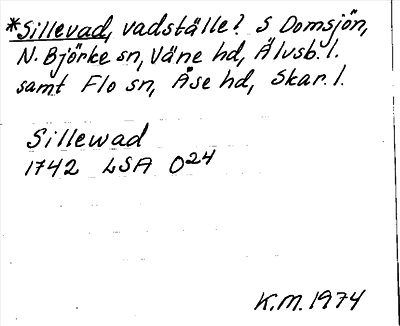 *Sillevad, vadställe? S Domsjön,
N. Björke sn, Väne hd, Älvsb. l.
samt Flo sn, Åse hd, Skar. l.
Sillewad
1742 LSA O24
K.M. 1974